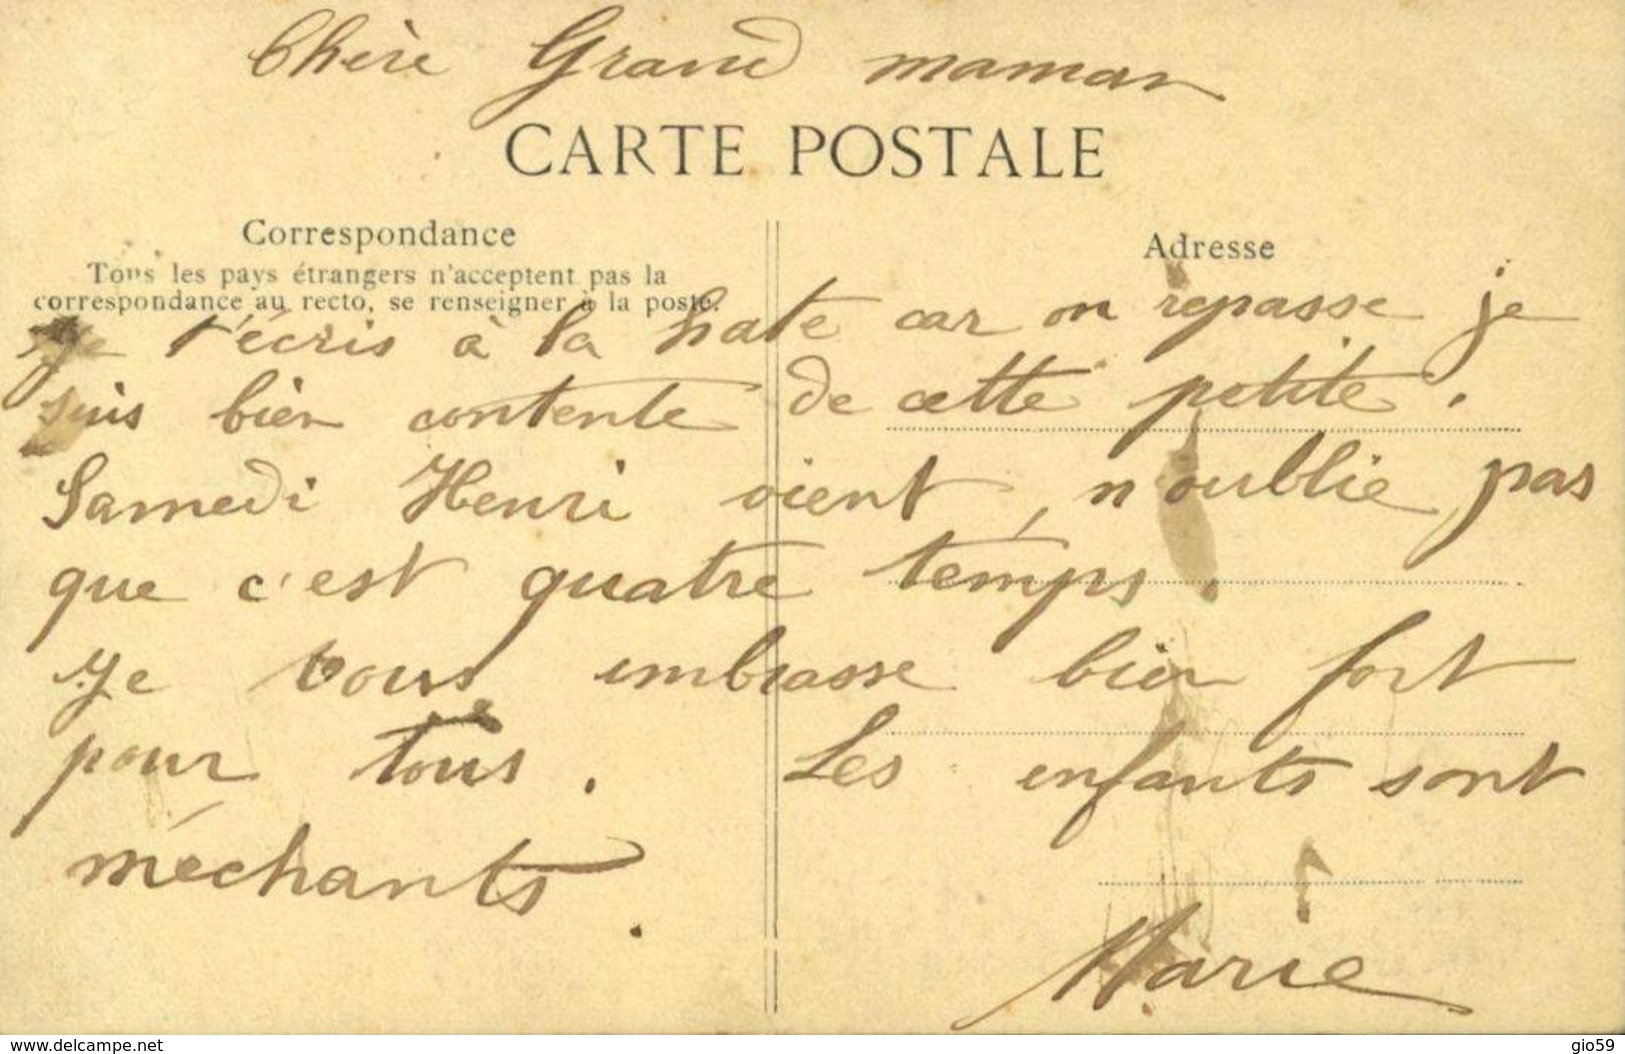 Chère Grand maman
CARTE POSTALE
Correspondance
Tous les pays étrangers n'acceptent pas la
correspondance au recto, se renseigner à la poste.
Adresse
Je t'écris à la hate car on repasse je
suis bien contente de cette petite.
Samedi Henri vient, n'oublie pas
que c'est quatre temps.
Je vous embrasse bien fort
pour tous. Les enfants sont
méchants.
Marie
www.delcampe.net
gio59